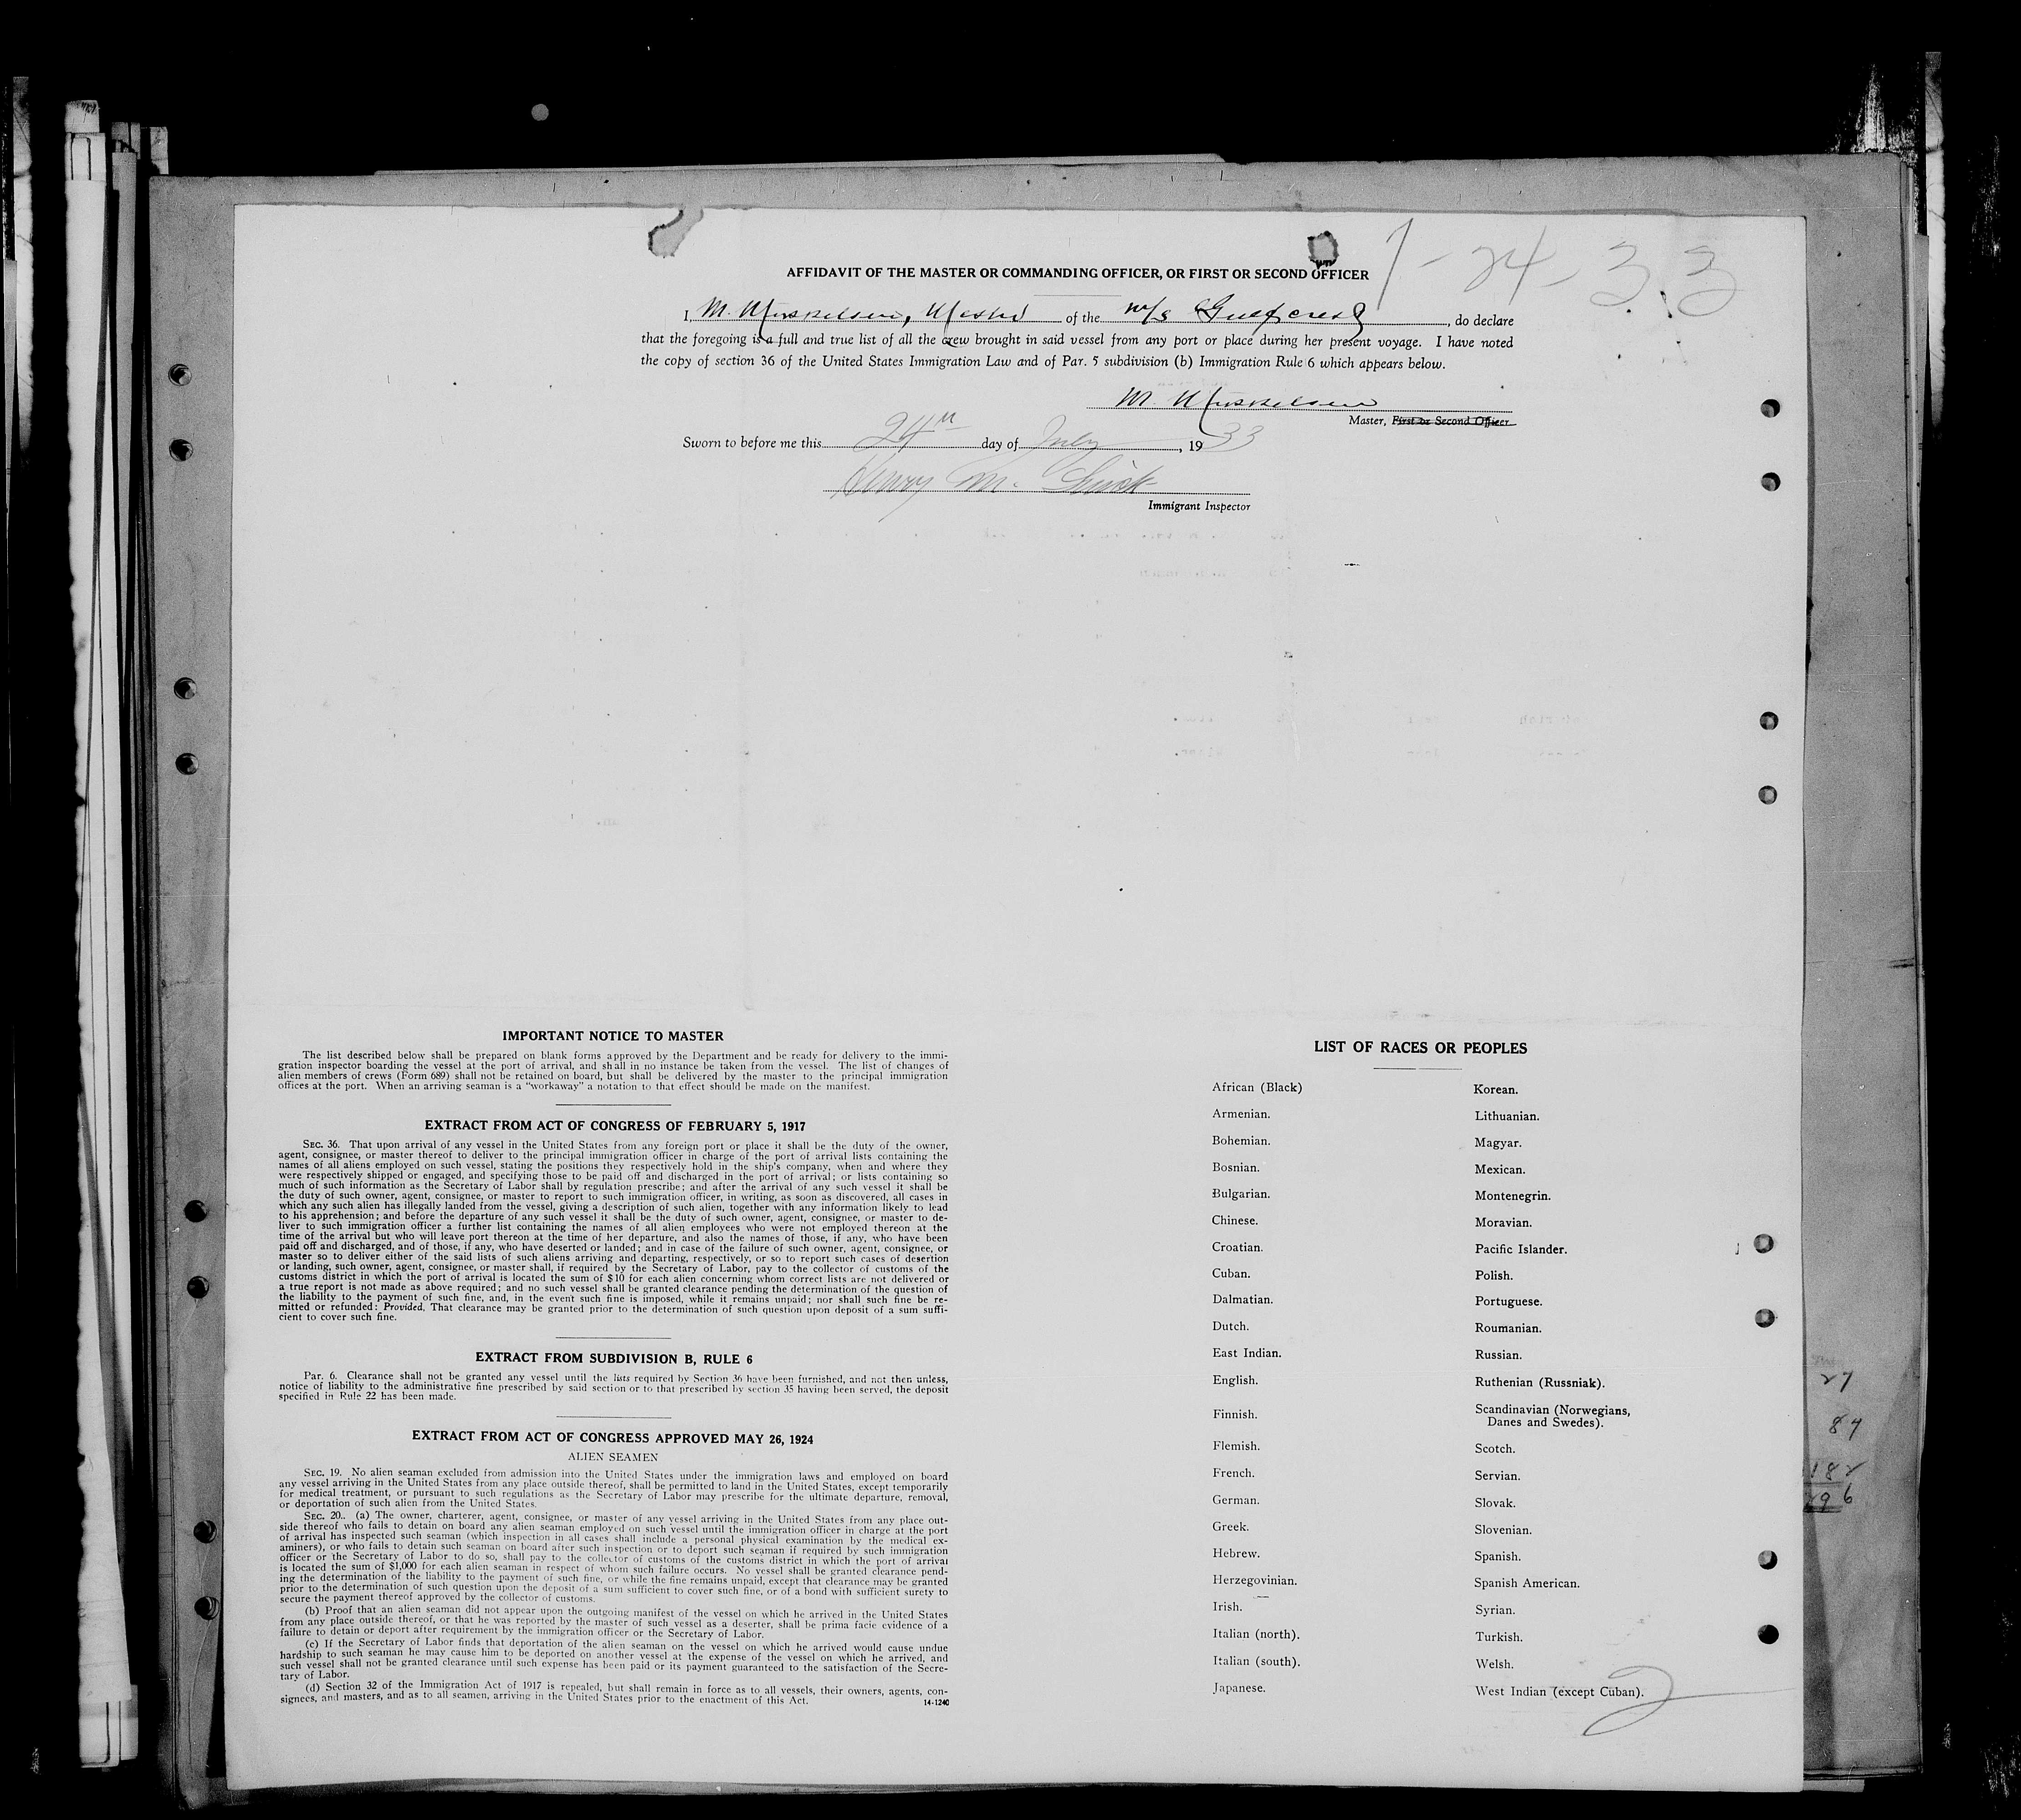 7-24-33
AFFIDAVIT OF THE MASTER OR COMMANDING OFFICER, OR FIRST OR SECOND OFFICER
I, M. , Master of the m/s Gulfcrest, do declare
that the foregoing is a full and true list of all the crew brought in said vessel from any port or place during her present voyage. I have noted
the copy of section 36 of the United States Immigration Law and of Par. 5 subdivision (b) Immigration Rule 6 which appears below.
M.
Master, First or Second Officer
Sworn to before me this 24th day of July, 1933
Henry M.
Immigrant Inspector
IMPORTANT NOTICE TO MASTER
The list described below shall be prepared on blank forms approved by the Department and be ready for delivery to the immi-
gration inspector boarding the vessel at the port of arrival, and shall in no instance be taken from the vessel. The list of changes of
alien members of crews (Form 689) shall not be retained on board, but shall be delivered by the master to the principal immigration
offices at the port. When an arriving seaman is a "workaway" a notation to that effect should be made on the manifest.
EXTRACT FROM ACT OF CONGRESS OF FEBRUARY 5, 1917
SEC. 36. That upon arrival of any vessel in the United States from any foreign port or place it shall be the duty of the owner,
agent, consignee, or master thereof to deliver to the principal immigration officer in charge of the port of arrival lists containing the
names of all aliens employed on such vessel, stating the positions they respectively hold in the ship's company, when and where they
were respectively shipped or engaged, and specifying those to be paid off and discharged in the port of arrival; or lists containing so
much of such information as the Secretary of Labor shall by regulation prescribe; and after the arrival of any such vessel it shall be
the duty of such owner, agent, consignee, or master to report to such immigration officer, in writing, as soon as discovered, all cases in
which any such alien has illegally landed from the vessel, giving a description of such alien, together with any information likely to lead
to his apprehension; and before the departure of any such vessel it shall be the duty of such owner, agent, consignee, or master to de-
liver to such immigration officer a further list containing the names of all alien employees who were not employed thereon at the
time of the arrival but who will leave port thereon at the time of her departure, and also the names of those, if any, who have been
paid off and discharged, and of those, if any, who have deserted or landed; and in case of the failure of such owner, agent, consignee, or
master so to deliver either of the said lists of such aliens arriving and departing, respectively, or so to report such cases of desertion
or landing, such owner, agent, consignee, or master shall, if required by the Secretary of Labor, pay to the collector of customs of the
customs district in which the port of arrival is located the sum of $10 for each alien concerning whom correct lists are not delivered or
a true report is not made as above required; and no such vessel shall be granted clearance pending the determination of the question of
the liability to the payment of such fine, and, in the event such fine is imposed, while it remains unpaid; nor shall such fine be re-
mitted or refunded: Provided, That clearance may be granted prior to the determination of such question upon deposit of a sum suffi-
cient to cover such fine.
EXTRACT FROM SUBDIVISION B, RULE 6
Par. 6. Clearance shall not be granted any vessel until the lists required by Section 36 have been furnished, and not then unless,
notice of liability to the administrative fine prescribed by said section or to that prescribed by section 35 having been served, the deposit
specified in Rule 22 has been made.
EXTRACT FROM ACT OF CONGRESS APPROVED MAY 26, 1924
ALIEN SEAMEN
SEC. 19. No alien seaman excluded from admission into the United States under the immigration laws and employed on board
any vessel arriving in the United States from any place outside thereof, shall be permitted to land in the United States, except temporarily
for medical treatment, or pursuant to such regulations as the Secretary of Labor may prescribe for the ultimate departure, removal,
or deportation of such alien from the United States.
SEC. 20.. (a) The owner, charterer, agent, consignee, or master of any vessel arriving in the United States from any place out-
side thereof who fails to detain on board any alien seaman employed on such vessel until the immigration officer in charge at the port
of arrival has inspected such seaman (which inspection in all cases shall include a personal physical examination by the medical ex-
aminers), or who fails to detain such seaman on board after such inspection or to deport such seaman if required by such immigration
officer or the Secretary of Labor to do so, shall pay to the collector of customs of the customs district in which the port of arrival
is located the sum of $1,000 for each alien seaman in respect of whom such failure occurs. No vessel shall be granted clearance pend-
ing the determination of the liability to the payment of such fine, or while the fine remains unpaid, except that clearance may be granted
prior to the determination of such question upon the deposit of a sum sufficient to cover such fine, or of a bond with sufficient surety to
secure the payment thereof approved by the collector of customs.
(b) Proof that an alien seaman did not appear upon the outgoing manifest of the vessel on which he arrived in the United States
from any place outside thereof, or that he was reported by the master of such vessel as a deserter, shall be prima facie evidence of a
failure to detain or deport after requirement by the immigration officer or the Secretary of Labor.
(c) If the Secretary of Labor finds that deportation of the alien seaman on the vessel on which he arrived would cause undue
hardship to such seaman he may cause him to be deported on another vessel at the expense of the vessel on which he arrived, and
such vessel shall not be granted clearance until such expense has been paid or its payment guaranteed to the satisfaction of the Secre-
tary of Labor.
(d) Section 32 of the Immigration Act of 1917 is repealed, but shall remain in force as to all vessels, their owners, agents, con-
signees, and masters, and as to all seamen, arriving in the United States prior to the enactment of this Act.
14-1240
LIST OF RACES OR PEOPLES
African (Black)
Armenian.
Bohemian.
Bosnian.
Bulgarian.
Chinese.
Croatian.
Cuban.
Dalmatian.
Dutch.
East Indian.
English.
Finnish.
Flemish.
French.
German.
Greek.
Hebrew.
Herzegovinian.
Irish.
Italian (north).
Italian (south).
Japanese.
Korean.
Lithuanian.
Magyar.
Mexican.
Montenegrin.
Moravian.
Pacific Islander.
Polish.
Portuguese.
Roumanian.
Russian.
Ruthenian (Russniak).
Scandinavian (Norwegians,
Danes and Swedes).
Scotch.
Servian.
Slovak.
Slovenian.
Spanish.
Spanish American.
Syrian.
Turkish.
Welsh.
West Indian (except Cuban).
2
27
84
182